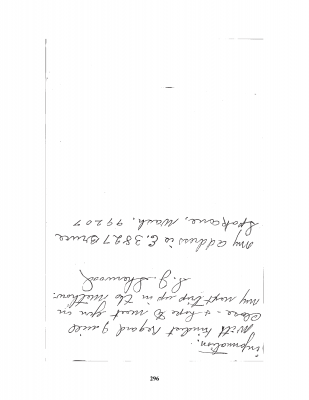 information.
With kindest regard I will
close - & hope to meet you in
my next trip up in the Methow.
S. J. Sherwood
my address is E. 3827 Bruce
Spokane, Wash. 99207
296